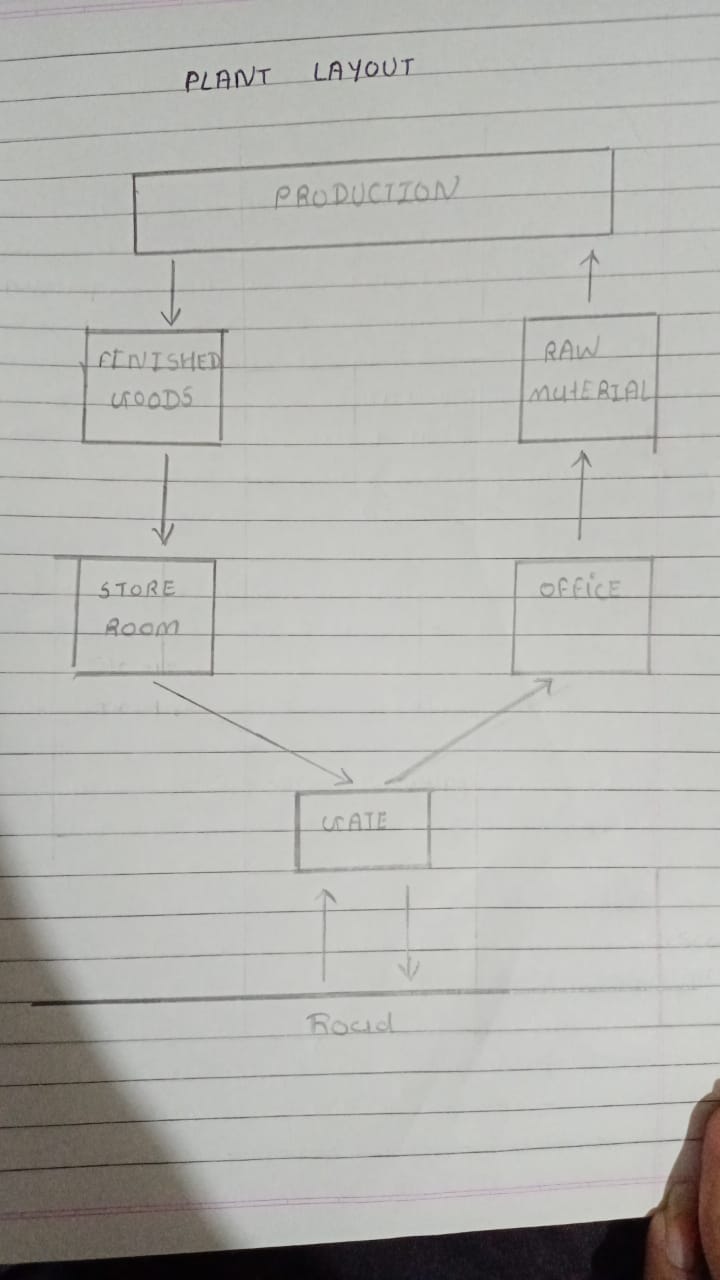 PLANT LAYOUT
PRODUCTION
FINISHED
GOODS
RAW
MATERIAL
STORE
ROOM
OFFiCE
GATE
Road